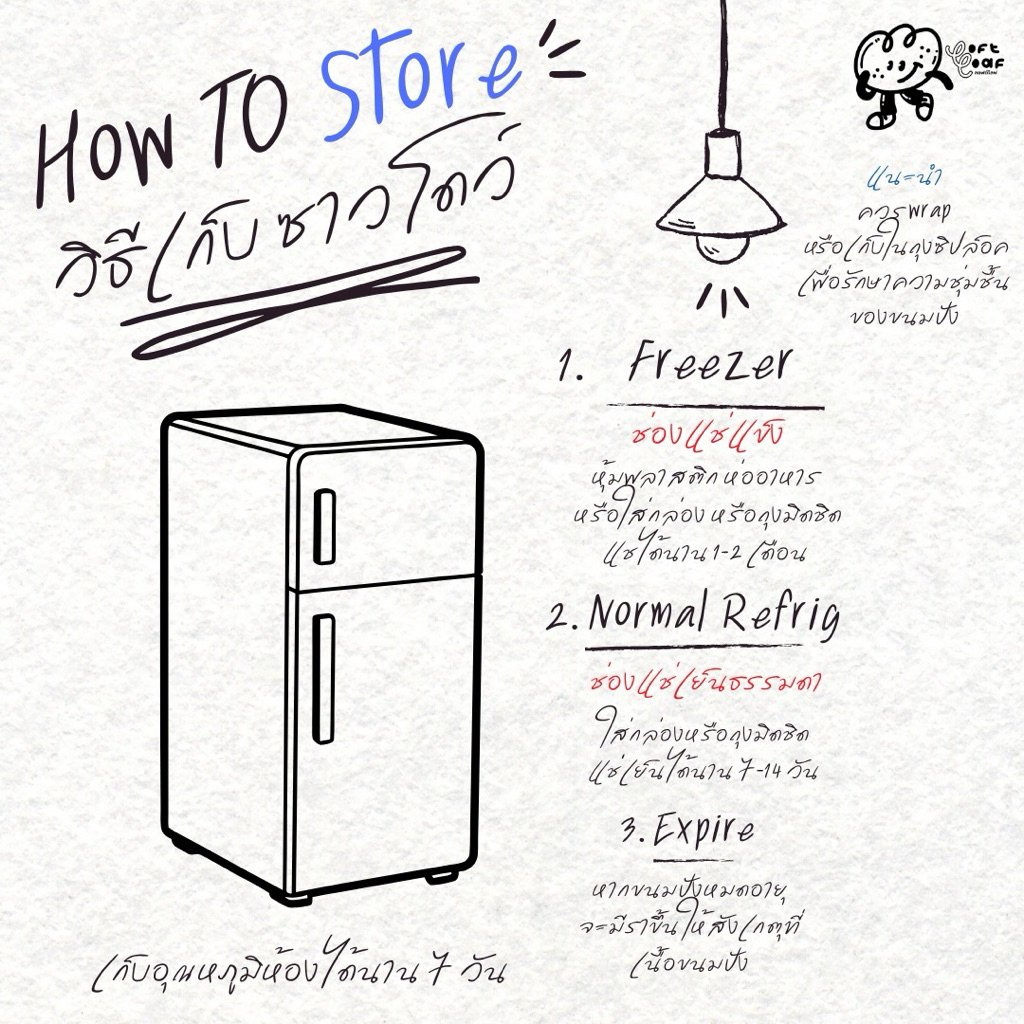 HOW TO Store
วิธีเก็บซาวโดว์
Soft
Loaf
แนะนำ
ควร wrap
หรือเก็บในถุงซิปล็อค
เพื่อรักษาความชุ่มชื้น
ของขนมปัง
1. Freezer
ช่องแช่แข็ง
หุ้มพลาสติกห่ออาหาร
หรือใส่กล่อง หรือถุงมิดชิด
แช่ได้นาน 1-2 เดือน
2. Normal Refrig
ช่องแช่เย็นธรรมดา
ใส่กล่องหรือถุงมิดชิด
แช่เย็นได้นาน 7-14 วัน
3. Expire
หากขนมปังหมดอายุ
จะมีราขึ้นให้สังเกตุที่
เนื้อขนมปัง
เก็บอุณหภูมิห้องได้นาน 7 วัน